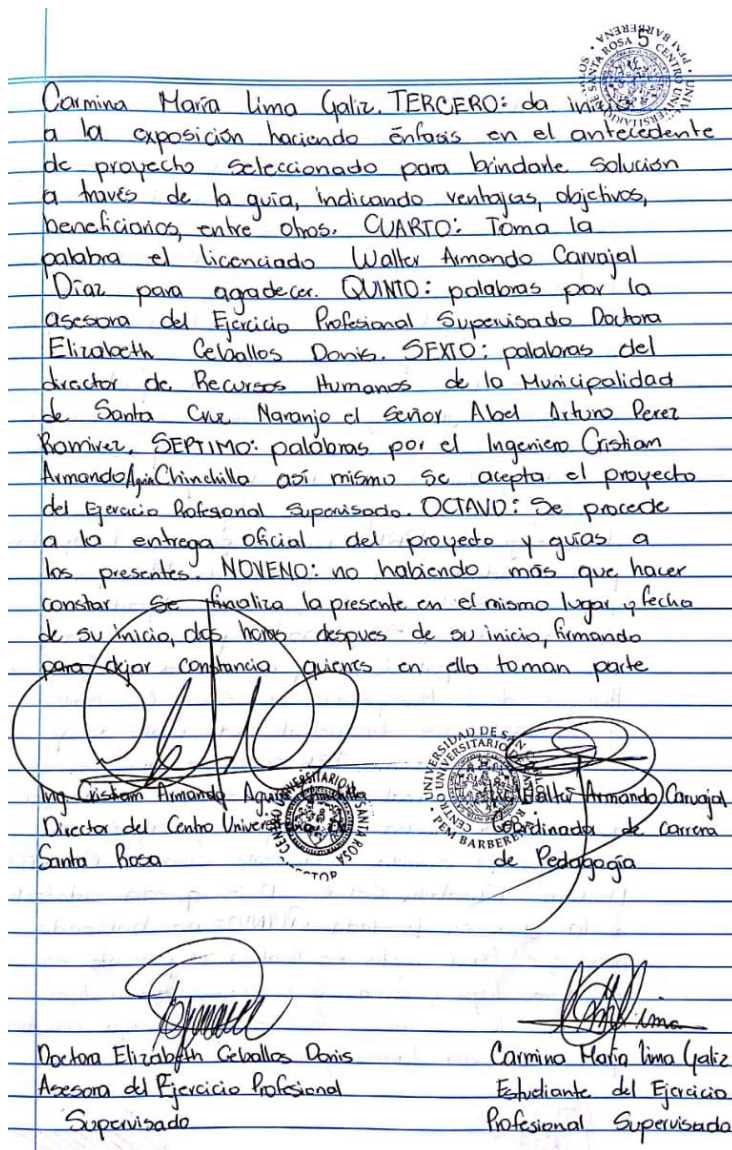 5
Carmina María Lima Galiz. TERCERO: da inicio
a la exposición haciendo énfasis en el antecedente
de proyecto seleccionado para brindarle solución
a través de la guía, indicando ventajas, objetivos,
beneficiarios, entre otros. CUARTO: Toma la
palabra el licenciado Walter Armando Carvajal
Díaz para agradecer. QUINTO: palabras por la
asesora del Ejercicio Profesional Supervisado Doctora
Elizabeth Ceballos Donis. SEXTO: palabras del
director de Recursos Humanos de la Municipalidad
de Santa Cruz Naranjo el Señor Abel Arturo Perez
Ramirez. SEPTIMO: palabras por el Ingeniero Cristiam
Armando Chinchilla así mismo se acepta el proyecto
del Ejercicio Profesional Supervisado. OCTAVO: Se procede
a la entrega oficial del proyecto y guías a
los presentes. NOVENO: no habiendo más que hacer
constar se finaliza la presente en el mismo lugar y fecha
de su inicio, dos horas despues de su inicio, firmando
para dejar constancia quienes en ella toman parte
Ing. Cristiam Armando
Director del Centro
Santa Rosa
Walter Armando Carvajal
Coordinador de carrera
de Pedagogía
Doctora Elizabeth Ceballos Donis
Asesora del Ejercicio Profesional
Supervisado
Carmina María Lima Galiz
Estudiante del Ejercicio
Profesional Supervisado